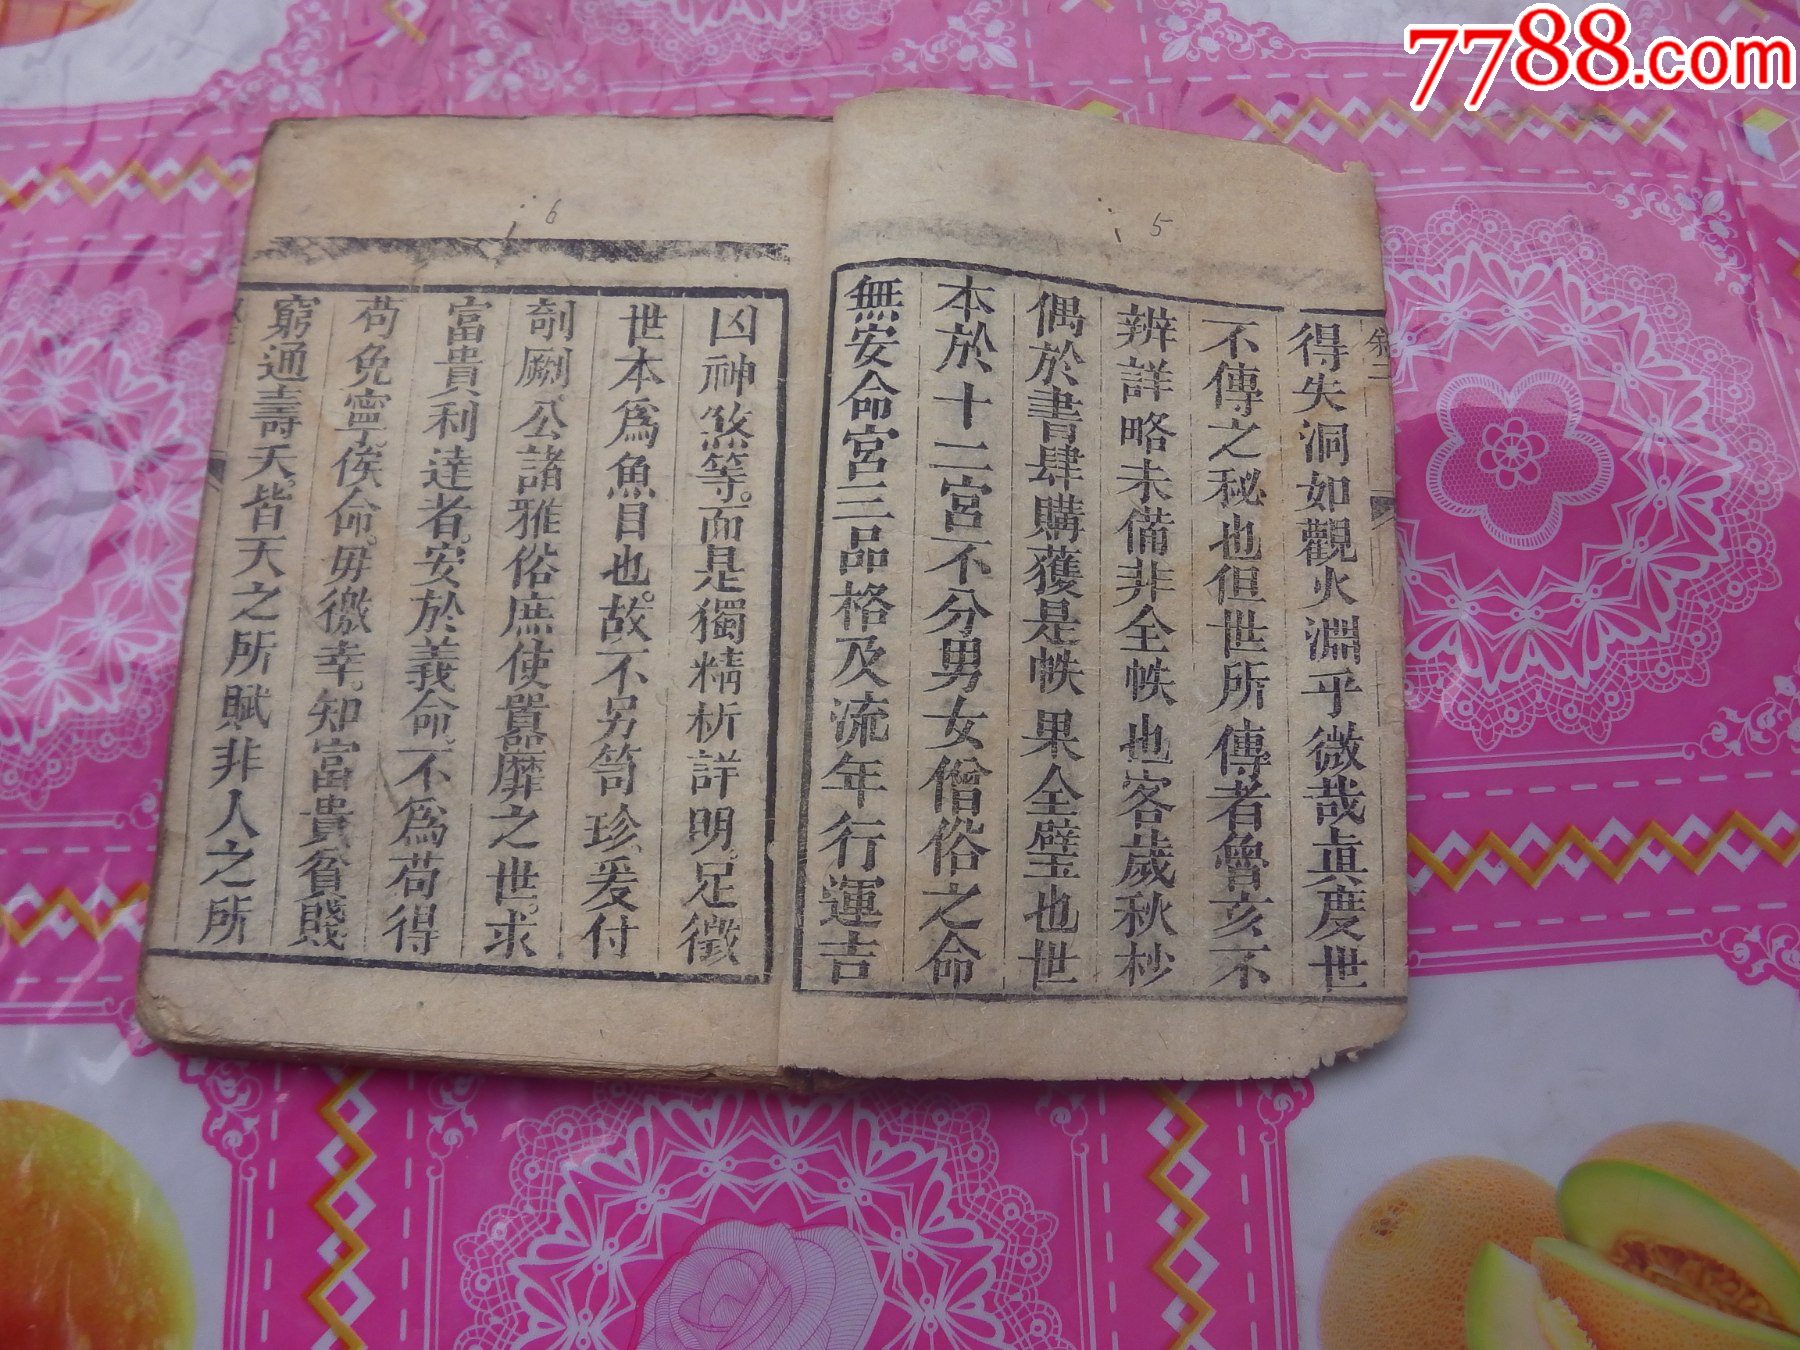 7788.com
5
得失洞如觀火淵乎微哉眞度世
不傳之秘也但世所傳者魯亥不
辨詳略未備非全帙也客歲秋杪
偶於書肆購獲是帙果全璧也世
本於十二宮不分男女僧俗之命
無安命宮三品格及流年行運吉
6
凶神煞等。而是獨精析詳明。足徵
世本爲魚目也。故不另笥珍。爰付
剞劂。公諸雅俗庶使囂靡之世。求
富貴利達者。安於義命。不爲苟得
苟免。寧俟命。毋徼幸。知富貴貧賤
窮通壽夭。皆天之所賦非人之所